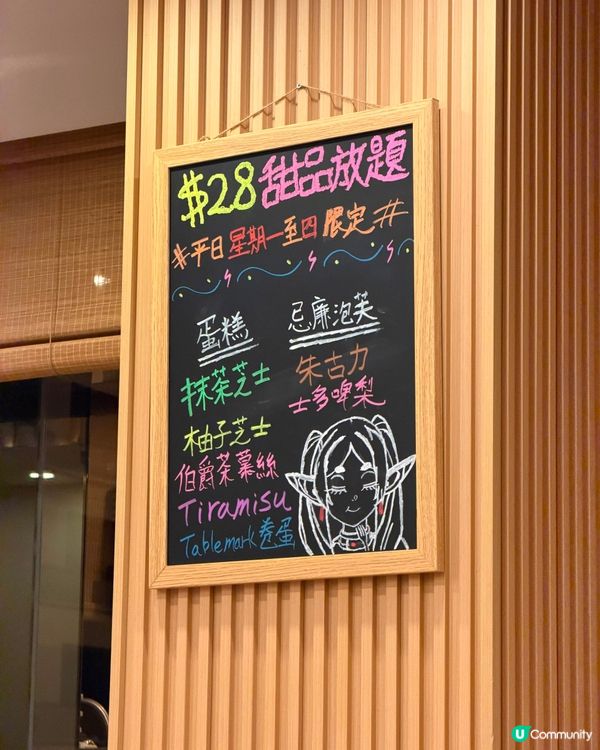 $28 甜品放題
#平日 星期一至四 限定#
蛋糕
抹茶芝士
柚子芝士
伯爵茶慕絲
Tiramisu
Tablemark卷蛋
忌廉泡芙
朱古力
士多啤梨
U Community